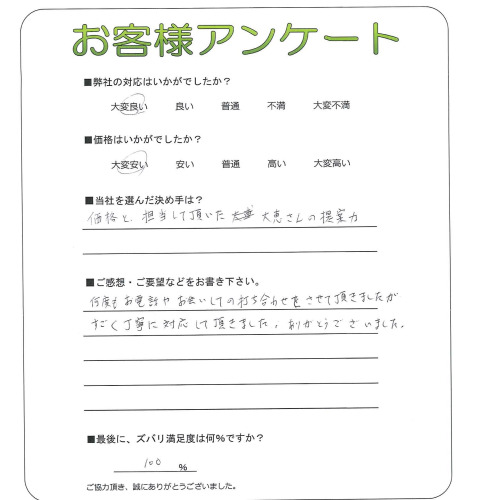 お客様アンケート
■弊社の対応はいかがでしたか？
大変良い 良い 普通 不満 大変不満
■価格はいかがでしたか？
大変安い 安い 普通 高い 大変高い
■当社を選んだ決め手は？
価格と、担当して頂いた 大恵さんの提案力
■ご感想・ご要望などをお書き下さい。
何度もお電話やお会いしての打ち合わせをさせて頂きましたが
すごく丁寧に対応して頂きました。ありがとうございました。
■最後に、ズバリ満足度は何%ですか？
100 %
ご協力頂き、誠にありがとうございました。